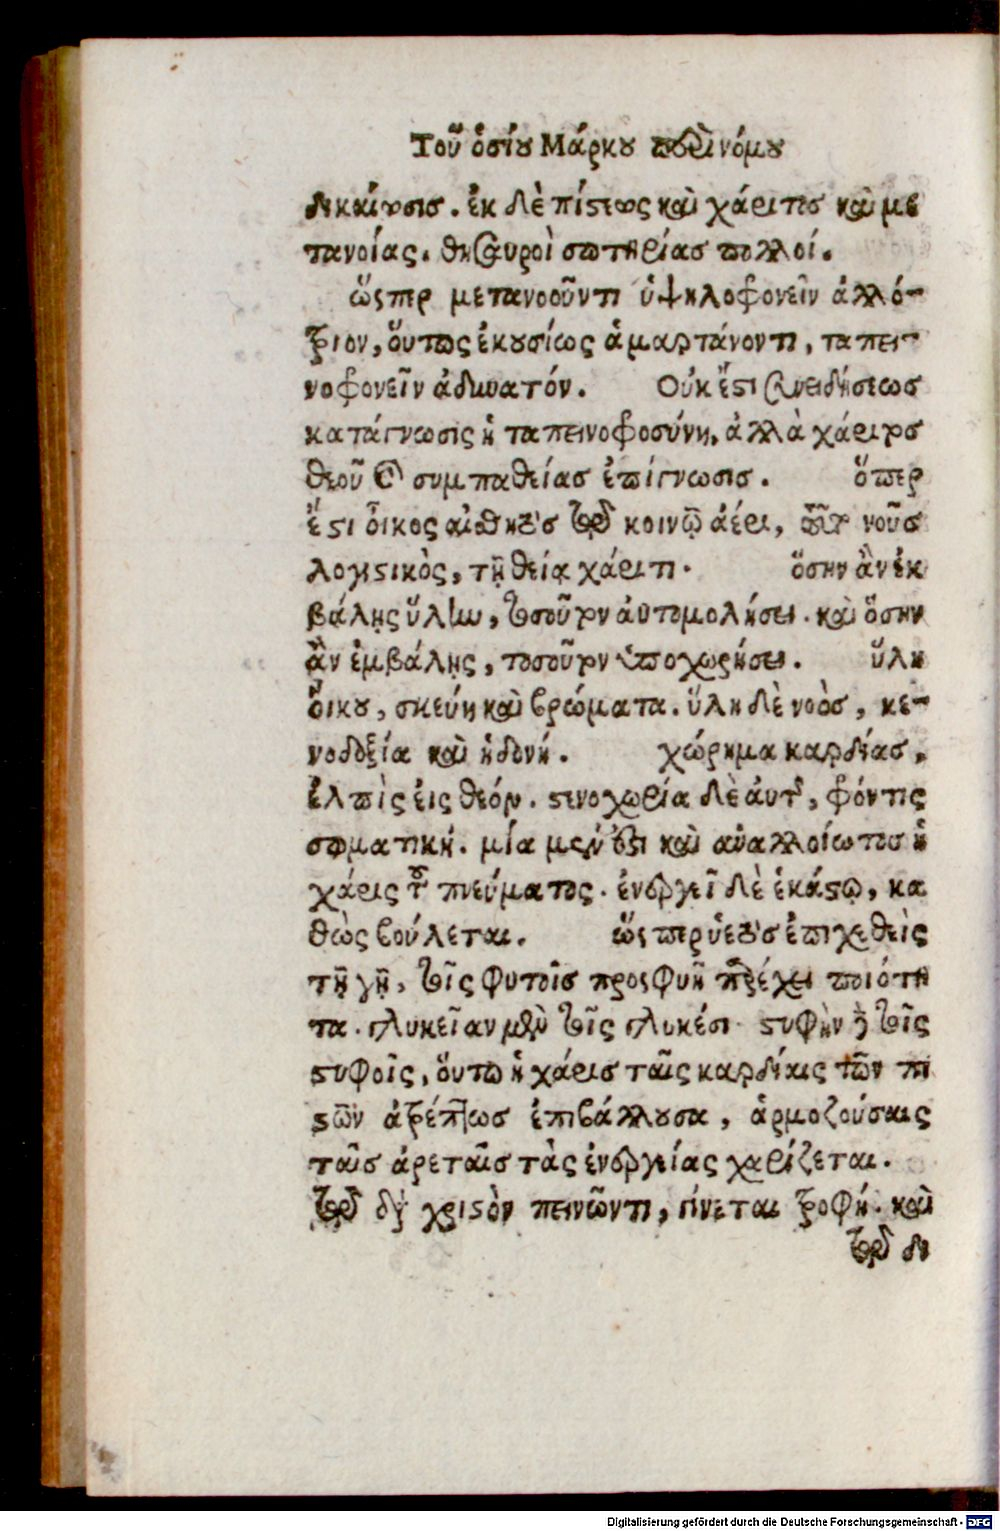 Τοῦ ὁσίου Μάρκου περὶ νόμου
δικαίωσις. ἐκ δὲ πίστεως καὶ χάριτος καὶ με
τανοίας. θησαυροὶ σωτηρίας πολλοί.
ὥσπερ μετανοοῦντι ὑψηλοφρονεῖν ἀλλό-
τριον, οὕτως ἑκουσίως ἁμαρτάνοντι, ταπει-
νοφρονεῖν ἀδύνατόν. Οὐκ ἔστι συνειδήσεως
κατάγνωσις ἡ ταπεινοφροσύνη, ἀλλὰ χάριτος
θεοῦ καὶ συμπαθείας ἐπίγνωσις. ὅπερ
ἔστι οἶκος αἰσθητὸς τῷ κοινῷ ἀέρι, τοῦτο νοῦς
λογιστικὸς, τῇ θείᾳ χάριτι. ὅσην ἂν ἐκ
βάλῃς ὕλην, τοσοῦτον αὐτομολήσει. καὶ ὅσην
ἂν ἐμβάλῃς, τοσοῦτον ὑποχωρήσει. ὕλη
οἴκου, σκεύη καὶ βρώματα. ὕλη δὲ νοὸς, κε-
νοδοξία καὶ ἡδονή. χώρημα καρδίας,
ἐλπὶς εἰς θεόν. στενοχωρία δὲ αὐτῆς, φρόντις
σωματική. μία μέν ἐστι καὶ ἀναλλοίωτος ἡ
χάρις τοῦ πνεύματος. ἐνεργεῖ δὲ ἑκάστῳ, κα
θὼς βούλεται. ὥσπερ ὑετὸς ἐπιχεθεὶς
τῇ γῇ, τοῖς φυτοῖς προσφυῆ παρέχει ποιότη
τα. γλυκεῖαν μὲν τοῖς γλυκέσι στυφὴν δὲ τοῖς
στυφοῖς, οὕτω ἡ χάρις ταῖς καρδίαις τῶν πι
στῶν ἀτρέπτως ἐπιβάλλουσα, ἁρμοζούσαις
ταῖς ἀρεταῖς τὰς ἐνεργείας χαρίζεται.
τῷ διὰ χριστὸν πεινῶντι, γίνεται τροφή. καὶ
τῷ δι
Digitalisierung gefördert durch die Deutsche Forschungsgemeinschaft - DFG